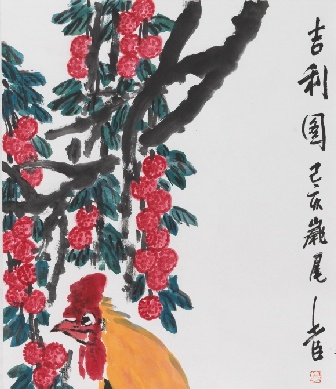 吉利图己亥岁尾